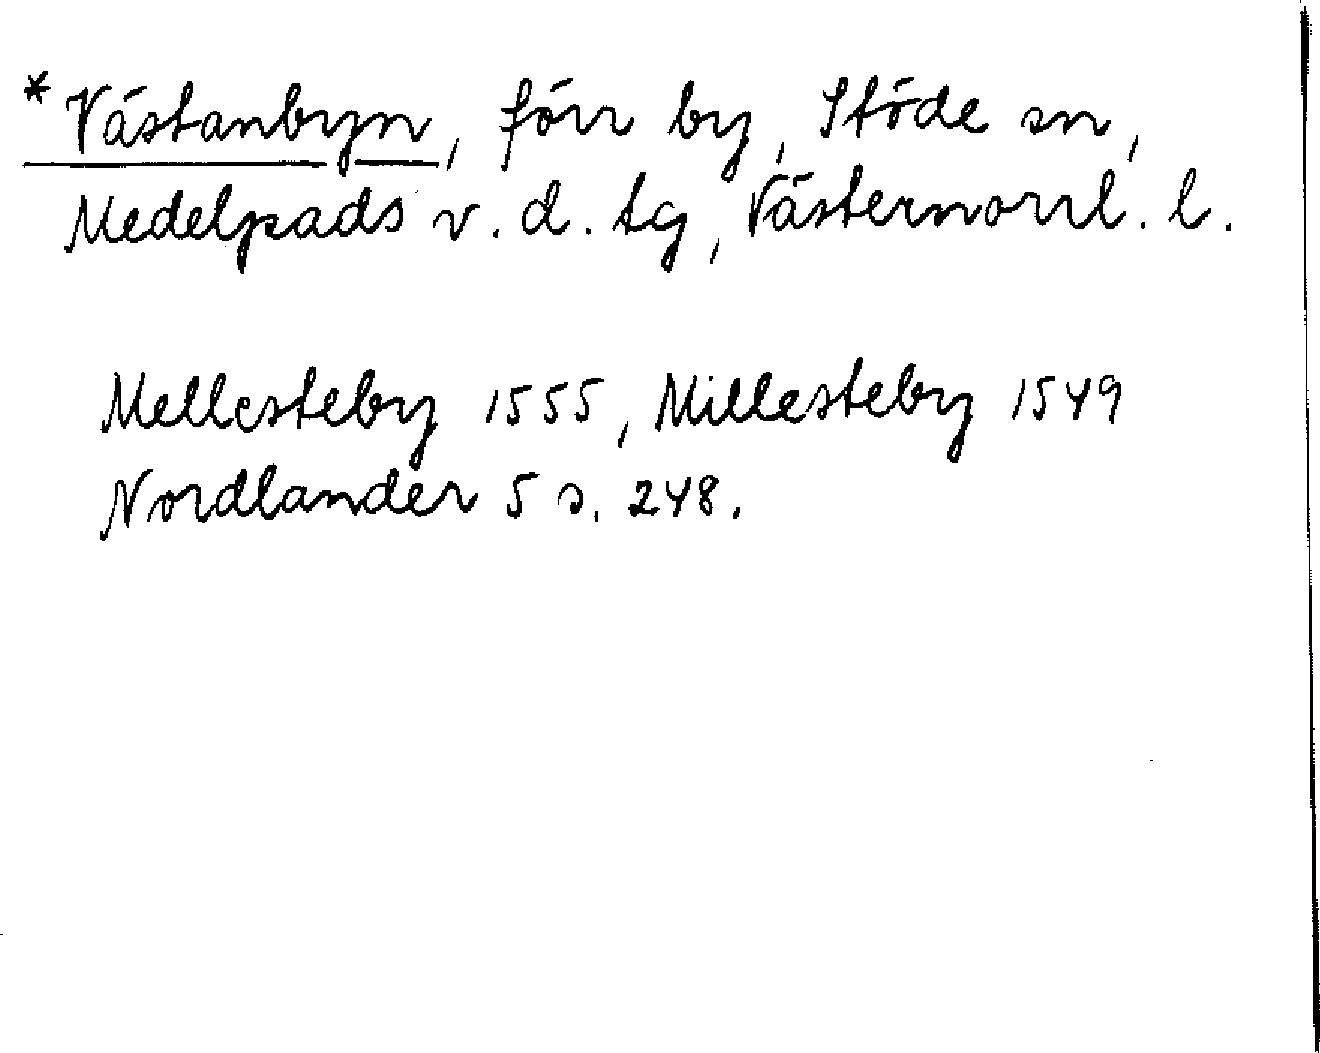 *Västanbyn, förr by, Stöde sn,
Medelpads v. d. tg, Västernorrl. l.
Mellesteby 1555, Millesteby 1549
Nordlander 5 s. 248.